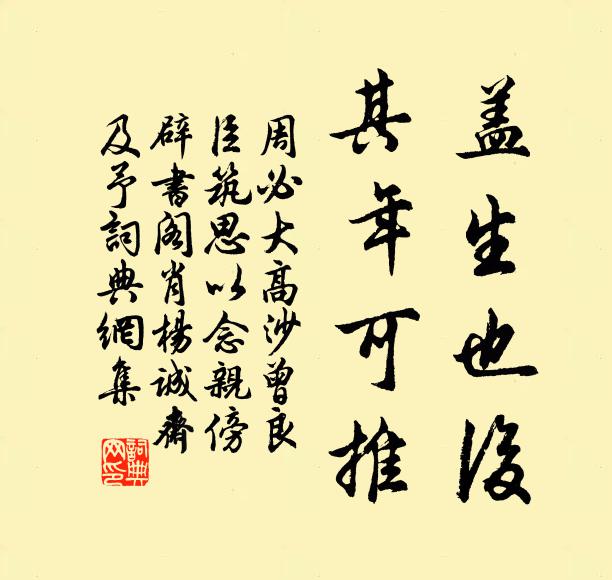 盖生也後
其年可推
周必大高沙曾良
臣筑思以念親傍
辟書阁肖楊誠齋
及予詞典網集
詞典網印